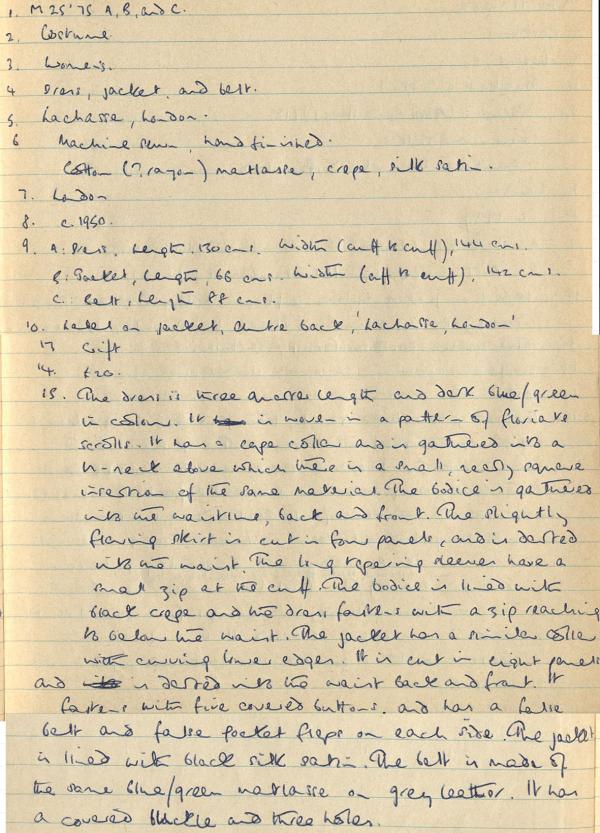 1. M 25'75 A, B, and C.
2. Costume
3. Women's.
4 Dress, jacket, and belt.
5. Lachasse, London.
6 Machine sewn, hand finished.
Cotton (?rayon) matlasse, crepe, silk satin.
7. London
8. c.1950.
9. A: Dress, Length, 130 cms. Width (cuff to cuff), 144 cms.
B: Jacket, Length, 66 cms. Width (cuff to cuff), 142 cms.
C: Belt, Length 88 cms.
10. Label on jacket, centre back, 'Lachasse, London'
13 Gift
14. £20.
15. The dress is three quarter length and dark blue/green
in colour. It is woven in a pattern of floriate
scrolls. It has a cape collar and is gathered into a
V-neck above which there is a small, nearly square
insertion of the same material. The bodice is gathered
into the waistline, back and front. The slightly
flaring skirt is cut in four panels, and is darted
into the waist. The long tapering sleeves have a
small zip at the cuff. The bodice is lined with
black crepe and the dress fastens with a zip reaching
to below the waist. The jacket has a similar collar
with curving lower edges. It is cut in eight panels
and is darted into the waist back and front. It
fastens with five covered buttons, and has a false
belt and false pocket flaps on each side. The jacket
is lined with black silk satin. The belt is made of
the same blue/green matlasse on grey leather. It has
a covered buckle and three holes.